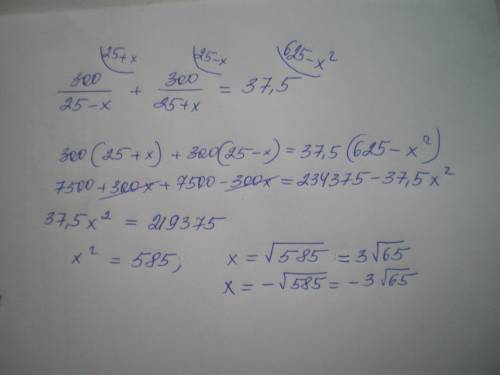 25+x 25-x 625-x²
300/(25-x) + 300/(25+x) = 37,5
300(25+x) + 300(25-x) = 37,5(625-x²)
7500+300x+7500-300x=234375-37,5x²
37,5x² = 219375
x² = 585, x = √585 = 3√65
x = -√585 = -3√65